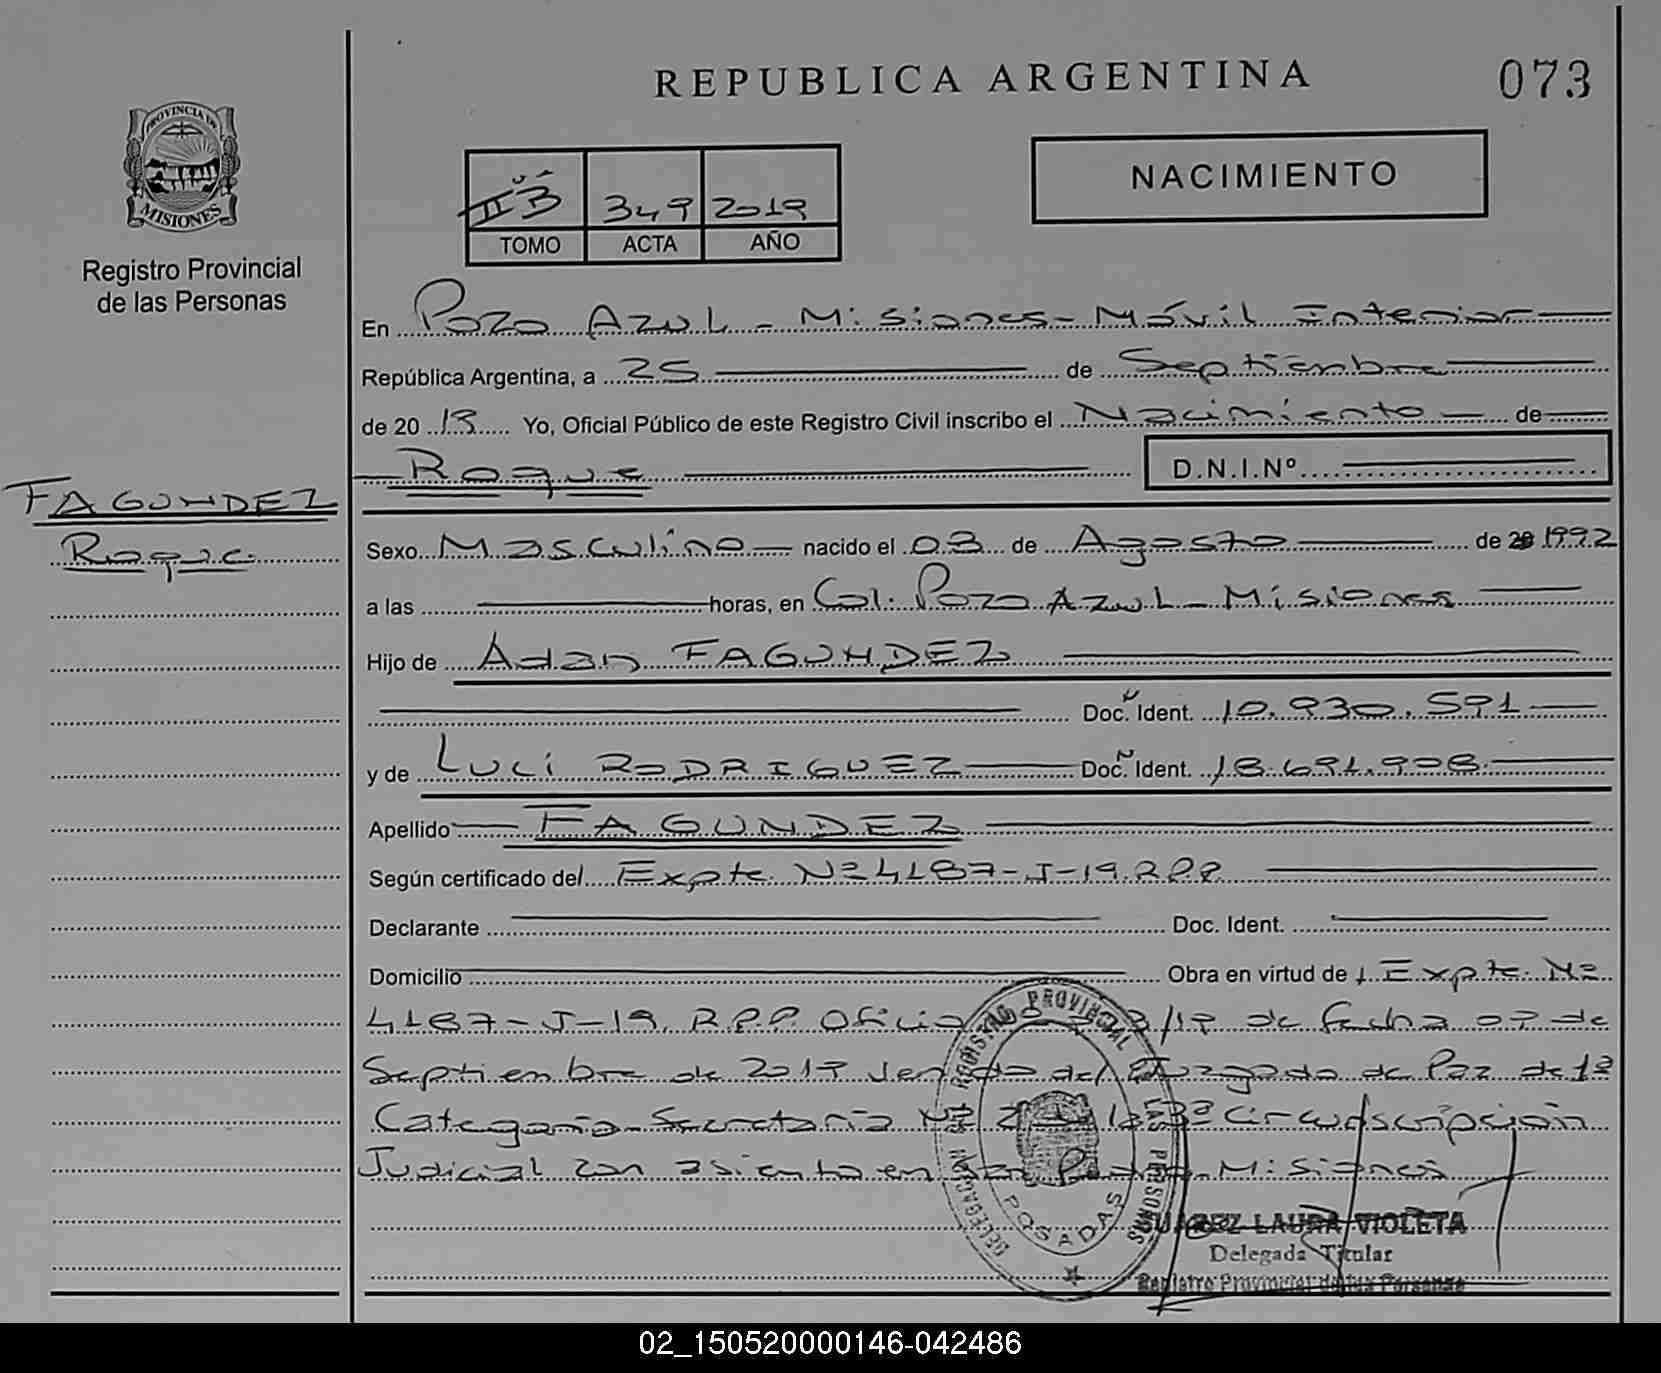 REPUBLICA ARGENTINA
073
PROVINCIA DE
MISIONES
Registro Provincial
de las Personas
349 2019
TOMO ACTA AÑO
NACIMIENTO
En Pozo Azul - Misiones - Móvil Interior
República Argentina, a 25 de Septiembre
de 20 19 Yo, Oficial Público de este Registro Civil inscribo el Nacimiento de
Roque D.N.I.Nº
FAGUNDEZ
Roque
Sexo Masculino nacido el 03 de Agosto de 1992
a las horas, en Col. Pozo Azul - Misiones
Hijo de Adan FAGUNDEZ
Doc. Ident. 10.930.591
y de Luci RODRIGUEZ Doc. Ident. 18.691.908
Apellido FAGUNDEZ
Según certificado del Expte Nº 4187-J-19.R.P.P.
Declarante Doc. Ident.
Domicilio Obra en virtud de Expte. Nº
4187-J-19. R.P.P. Oficio /19 de fecha 09 de
Septiembre de 2019 del Juzgado de Paz de 1ª
Categoria Secretaría Nº 2 la 3ª Circunscripción
Judicial con asiento en San Pedro - Misiones
DELEGACION DEL REGISTRO PROVINCIAL DE LAS PERSONAS
POSADAS
SUAREZ LAURA VIOLETA
Delegada Titular
Registro Provincial de las Personas
02_150520000146-042486